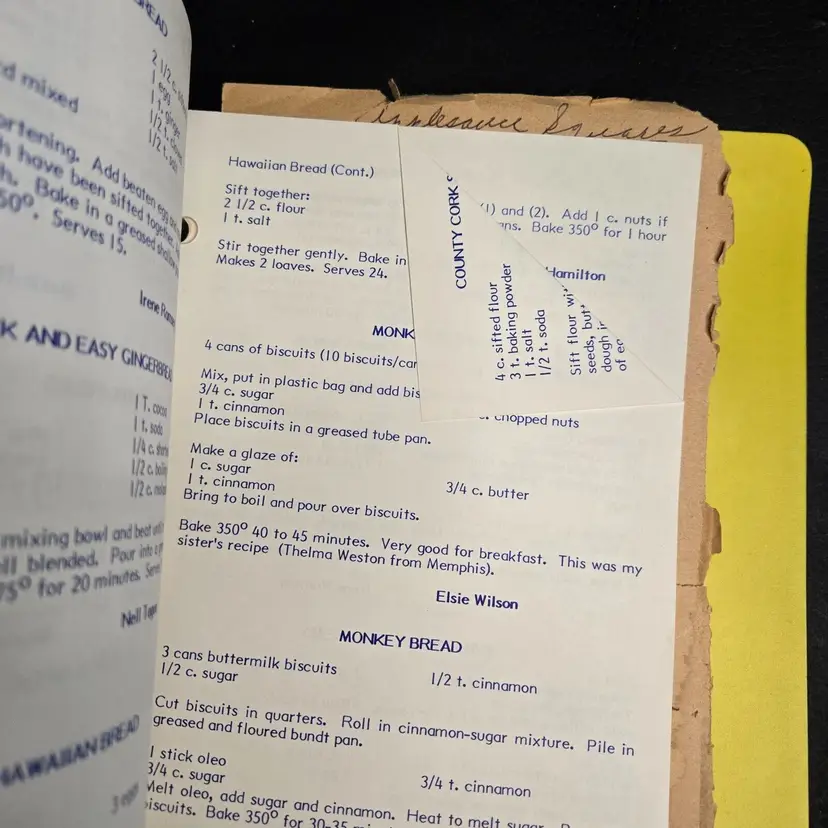 READ
2 1/2 c.
1 egg
1 t. ginger
1/2 t.
1/2 t. salt
d mixed
ortening. Add beaten egg
h have been sifted together.
h. Bake in a greased shallow
50º. Serves 15.
Irene
K AND EASY GINGERBREAD
1 T. cocoa
1 t. soda
1/4 c.
1/2 c.
1/2 c.
mixing bowl and beat until
ll blended. Pour into a
75º for 20 minutes.
Nell
HAWAIIAN BREAD
3 eggs
Applesauce Squares
Hawaiian Bread (Cont.)
Sift together:
2 1/2 c. flour
1 t. salt
(1) and (2). Add 1 c. nuts if
ans. Bake 350º for 1 hour
Stir together gently. Bake in
Makes 2 loaves. Serves 24.
Hamilton
COUNTY CORK S
4 c. sifted flour
3 t. baking powder
1 t. salt
1/2 t. soda
Sift flour wi
seeds, but
dough i
of
MONK
4 cans of biscuits (10 biscuits/can
Mix, put in plastic bag and add bis
3/4 c. sugar
1 t. cinnamon
chopped nuts
Place biscuits in a greased tube pan.
Make a glaze of:
1 c. sugar
1 t. cinnamon
3/4 c. butter
Bring to boil and pour over biscuits.
Bake 350º 40 to 45 minutes. Very good for breakfast. This was my
sister's recipe (Thelma Weston from Memphis).
Elsie Wilson
MONKEY BREAD
3 cans buttermilk biscuits
1/2 c. sugar
1/2 t. cinnamon
Cut biscuits in quarters. Roll in cinnamon-sugar mixture. Pile in
greased and floured bundt pan.
1 stick oleo
3/4 c. sugar
3/4 t. cinnamon
Melt oleo, add sugar and cinnamon. Heat to melt sugar.
biscuits. Bake 350º for 30-35